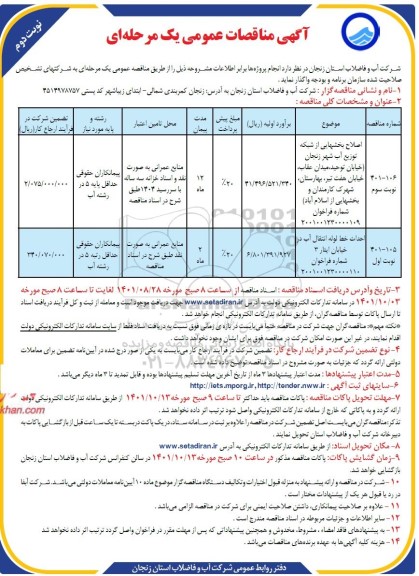 نوبت دوم
آگهی مناقصات عمومی یک مرحله‌ای
شرکت آب و فاضلاب استان زنجان در نظر دارد انجام پروژه‌ها برابر اطلاعات مشروحه ذیل را از طریق مناقصه عمومی یک مرحله‌ای به شرکتهای تشخیص
صلاحیت شده سازمان برنامه و بودجه واگذار نماید.
۱-نام و نشانی مناقصه‌گزار: شرکت آب و فاضلاب استان زنجان به آدرس: زنجان کمربندی شمالی- ابتدای زیباشهر کد پستی ۴۵۱۴۹۷۸۷۵۷
۲-عنوان و مشخصات کلی مناقصه:
شماره مناقصه | موضوع | برآورد اولیه (ریال) | مبلغ پیش پرداخت | مدت پیمان | محل تامین اعتبار | رشته و پایه مورد نیاز | تضمین شرکت در فرآیند ارجاع کار(ریال)
۴۰۱-۱۰۶ نوبت سوم | اصلاح بخشهایی از شبکه توزیع آب شهر زنجان (خیابان توحید،میدان عقاب، خیابان هفت تیر، بهارستان، شهرک کارمندان و بخشهایی از اسلام آباد) شماره فراخوان ۲۰۰۱۰۰۱۲۳۰۰۰۰۱۰۹ | ۴۱/۴۹۶/۵۲۱/۳۴۰ | ۲۰٪ | ۱۲ ماه | منابع عمرانی به صورت نقد و اسناد خزانه سه ساله با سررسید ۱۴۰۴ طبق شرح در اسناد مناقصه | پیمانکاران حقوقی حداقل پایه ۵ در رشته آب | ۲/۰۷۵/۰۰۰/۰۰۰
۴۰۱-۱۰۵ نوبت اول | احداث خط لوله انتقال آب در خیابان ایثار ۳ شماره فراخوان ۲۰۰۱۰۰۱۲۳۰۰۰۰۱۱۰ | ۶/۸۰۱/۳۹۱/۹۲۷ | ۲۰٪ | ۲ ماه | منابع عمرانی به صورت نقد طبق شرح در اسناد مناقصه | پیمانکاران حقوقی حداقل رتبه ۵ در رشته آب | ۳۴۰/۰۷۰/۰۰۰
۳-تاریخ و آدرس دریافت اسناد مناقصه: اسناد مناقصه از ساعت ۸ صبح مورخه ۱۴۰۱/۰۸/۲۸ لغایت تا ساعت ۸ صبح مورخه
۱۴۰۱/۱۰/۰۳ در سامانه تدارکات الکترونیکی دولت به آدرس www.setadiran.ir جهت دریافت موجود
تا ارسال پاکات توسط مناقصه‌گران، از طریق سامانه تدارکات الکترونیکی انجام خواهد شد.
«نکته مهم»: مناقصه گران جهت شرکت در مناقصه حتما می‌بایست در بازه‌ی زمانی فوق نسبت به دریافت اسناد فقط از سایت سامانه تدارکات الکترونیکی دولت
اقدام نمایند، در غیر این صورت امکان شرکت در مناقصه فوق برای ایشان وجود نخواهد داشت.
۴-نوع تضمین شرکت در فرآیند ارجاع کار: تضمین شرکت در فرآیند ارجاع کار می‌بایست به یکی از صور درج شده در آیین‌نامه تضمین برای معاملات
دولتی ارائه گردد که جزئیات به صورت مشروح در اسناد مناقصه توضیح داده شده است.
۵-مدت اعتبار پیشنهادها: مدت اعتبار پیشنهادها ۳ ماه از تاریخ آخرین مهلت تسلیم پیشنهادها بوده و قابل تمدید تا ۳ ماه دیگر می‌باشد.
۶-سایتهای ثبت آگهی: http://iets.mporg.ir, http://tender.nww.ir
۷-مهلت تحویل پاکات مناقصه: پاکات مناقصه باید حداکثر تا ساعت ۹ صبح مورخه ۱۴۰۱/۱۰/۱۳ از طریق سامانه تدارکات الکترونیکی
ارائه گردد و به پاکاتی که خارج از سامانه تدارکات الکترونیکی واصل شود ترتیب اثر داده نخواهد شد.
تذکر: مناقصه گران می‌بایست اصل تضمین شرکت در مناقصه را علاوه بر ثبت در سامانه ستاد، در یک پاکت دربسته تا یک ساعت قبل از بازگشایی پاکات به
دبیرخانه شرکت آب و فاضلاب استان تحویل نمایند.
۸-مکان تحویل اسناد: از طریق سامانه تدارکات الکترونیکی به آدرس www.setadiran.ir
۹-زمان گشایش پاکات: پاکات مناقصه مذکور در ساعت ۱۰ صبح مورخه ۱۴۰۱/۱۰/۱۳ در سالن کنفرانس شرکت آب و فاضلاب استان زنجان
بازگشایی خواهد شد.
۱۰-شرکت در مناقصه و ارائه پیشنهاد به منزله قبول اختیارات و تکالیف دستگاه مناقصه گزار موضوع ماده ۱۰ آیین‌نامه معاملات دولتی می‌باشد.
در رد یا قبول هر یک از پیشنهادات مختار است.
۱۱-علاوه بر صلاحیت پیمانکاری، داشتن صلاحیت ایمنی برای شرکت در مناقصه الزامی می‌باشد.
۱۲-سایر اطلاعات و جزئیات مربوطه در اسناد مناقصه مندرج است.
۱۳-به پیشنهادهای فاقد امضاء، مشروط، مخدوش و همچنین پیشنهاداتی که پس از مهلت مقرر در فراخوان واصل گردد ترتیب اثر داده نخواهد شد
۱۴-هزینه کلیه آگهی‌ها به عهده برنده‌های مناقصات می‌باشد.
دفتر روابط عمومی شرکت آب و فاضلاب استان زنجان